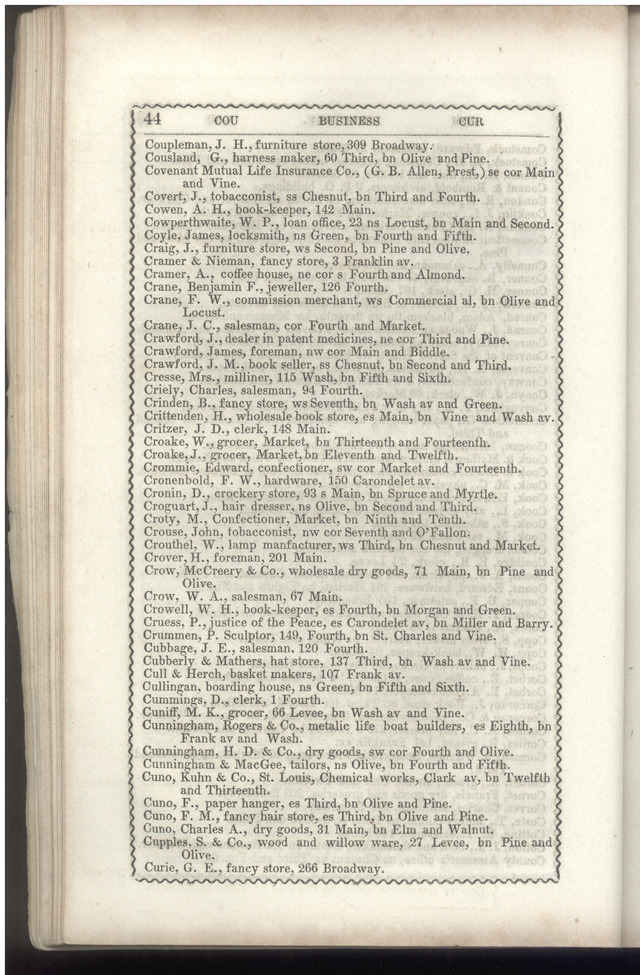 44 COU BUSINESS CUR
Coupleman, J. H., furniture store, 309 Broadway.
Cousland, G., harness maker, 60 Third, bn Olive and Pine.
Covenant Mutual Life Insurance Co., (G. B. Allen, Prest,) se cor Main
and Vine.
Covert, J., tobacconist, ss Chesnut, bn Third and Fourth.
Cowen, A. H., book-keeper, 142 Main.
Cowperthwaite, W. P., loan office, 23 ns Locust, bn Main and Second.
Coyle, James, locksmith, ns Green, bn Fourth and Fifth.
Craig, J., furniture store, ws Second, bn Pine and Olive.
Cramer & Nieman, fancy store, 3 Franklin av.
Cramer, A., coffee house, ne cor s Fourth and Almond.
Crane, Benjamin F., jeweller, 126 Fourth.
Crane, F. W., commission merchant, ws Commercial al, bn Olive and
Locust.
Crane, J. C., salesman, cor Fourth and Market.
Crawford, J., dealer in patent medicines, ne cor Third and Pine.
Crawford, James, foreman, nw cor Main and Biddle.
Crawford, J. M., book seller, ss Chesnut, bn Second and Third.
Cresse, Mrs., milliner, 115 Wash, bn Fifth and Sixth.
Criely, Charles, salesman, 94 Fourth.
Crinden, B., fancy store, ws Seventh, bn Wash av and Green.
Crittenden, H., wholesale book store, es Main, bn Vine and Wash av.
Critzer, J. D., clerk, 148 Main.
Croake, W., grocer, Market, bn Thirteenth and Fourteenth.
Croake, J., grocer, Market, bn Eleventh and Twelfth.
Crommie, Edward, confectioner, sw cor Market and Fourteenth.
Cronenbold, F. W., hardware, 150 Carondelet av.
Cronin, D., crockery store, 93 s Main, bn Spruce and Myrtle.
Croguart, J., hair dresser, ns Olive, bn Second and Third.
Croty, M., Confectioner, Market, bn Ninth and Tenth.
Crouse, John, tobacconist, nw cor Seventh and O'Fallon.
Crouthel, W., lamp manfacturer, ws Third, bn Chesnut and Market.
Crover, H., foreman, 201 Main.
Crow, McCreery & Co., wholesale dry goods, 71 Main, bn Pine and
Olive.
Crow, W. A., salesman, 67 Main.
Crowell, W. H., book-keeper, es Fourth, bn Morgan and Green.
Cruess, P., justice of the Peace, es Carondelet av, bn Miller and Barry.
Crummen, P. Sculptor, 149, Fourth, bn St. Charles and Vine.
Cubbage, J. E., salesman, 120 Fourth.
Cubberly & Mathers, hat store, 137 Third, bn Wash av and Vine.
Cull & Herch, basket makers, 107 Frank av.
Cullingan, boarding house, ns Green, bn Fifth and Sixth.
Cummings, D., clerk, 1 Fourth.
Cuniff, M. K., grocer, 66 Levee, bn Wash av and Vine.
Cunningham, Rogers & Co., metalic life boat builders, es Eighth, bn
Frank av and Wash.
Cunningham, H. D. & Co., dry goods, sw cor Fourth and Olive.
Cunningham & MacGee, tailors, ns Olive, bn Fourth and Fifth.
Cuno, Kuhn & Co., St. Louis, Chemical works, Clark av, bn Twelfth
and Thirteenth.
Cuno, F., paper hanger, es Third, bn Olive and Pine.
Cuno, F. M., fancy hair store, es Third, bn Olive and Pine.
Cuno, Charles A., dry goods, 31 Main, bn Elm and Walnut.
Cupples, S. & Co., wood and willow ware, 27 Levee, bn Pine and
Olive.
Curie, G. E., fancy store, 266 Broadway.